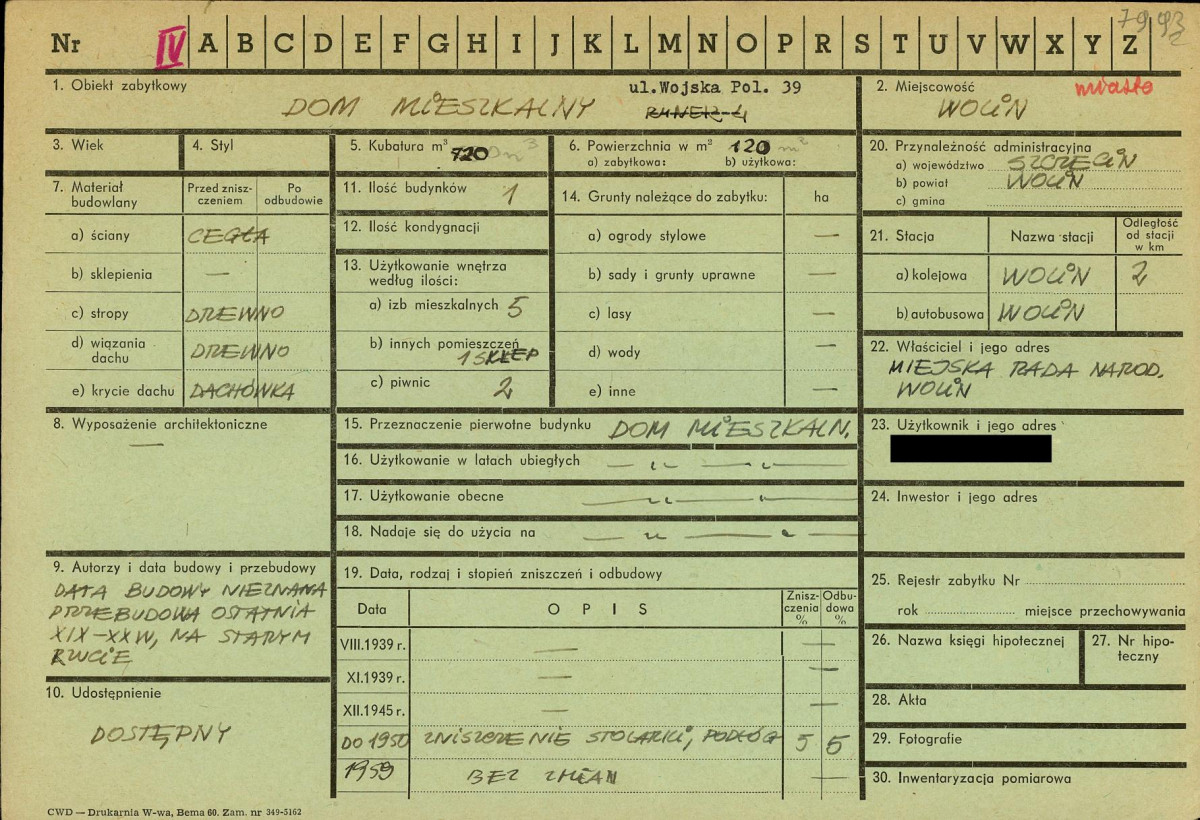 Nr IV A B C D E F G H I J K L M N O P R S T U V W X Y Z
1. Obiekt zabytkowy
DOM MIESZKALNY
ul.Wojska Pol. 39
2. Miejscowość
miasto
WOLIN
3. Wiek
4. Styl
5. Kubatura m³ 720 m³
6. Powierzchnia w m² 120 m²
a) zabytkowa: b) użytkowa:
7. Materiał budowlany
Przed znisz-
czeniem
Po
odbudowie
a) ściany CEGŁA
b) sklepienia —
c) stropy DREWNO
d) wiązania
dachu DREWNO
e) krycie dachu DACHÓWKA
8. Wyposażenie architektoniczne
—
9. Autorzy i data budowy i przebudowy
DATA BUDOWY NIEZNANA
PRZEBUDOWA OSTATNIA
XIX-XX W, NA STARYM
RZUCIE
10. Udostępnienie
DOSTĘPNY
11. Ilość budynków 1
12. Ilość kondygnacji
13. Użytkowanie wnętrza
według ilości:
a) izb mieszkalnych 5
b) innych pomieszczeń
1 SKLEP
c) piwnic 2
14. Grunty należące do zabytku: ha
a) ogrody stylowe —
b) sady i grunty uprawne —
c) lasy —
d) wody —
e) inne —
15. Przeznaczenie pierwotne budynku DOM MIESZKALN.
16. Użytkowanie w latach ubiegłych — " — " —
17. Użytkowanie obecne — " — " —
18. Nadaje się do użycia na — " — " —
19. Data, rodzaj i stopień zniszczeń i odbudowy
Data
OPIS
Znisz-
czenia
%
Odbu-
dowa
%
VIII.1939 r. — —
XI.1939 r. — —
XII.1945 r. — —
DO 1950 ZNISZCZENIE STOLARKI, PODŁÓG 5 5
1959 BEZ ZMIAN —
20. Przynależność administracyjna
a) województwo SZCZECIN
b) powiat WOLIN
c) gmina
21. Stacja
Nazwa stacji
Odległość
od stacji
w km
a) kolejowa WOLIN 2
b) autobusowa WOLIN
22. Właściciel i jego adres
MIEJSKA RADA NAROD.
WOLIN
23. Użytkownik i jego adres
24. Inwestor i jego adres
25. Rejestr zabytku Nr
rok miejsce przechowywania
26. Nazwa księgi hipotecznej
27. Nr hipo-
teczny
28. Akta
29. Fotografie
30. Inwentaryzacja pomiarowa
CWD — Drukarnia W-wa, Bema 60. Zam. nr 349-5162